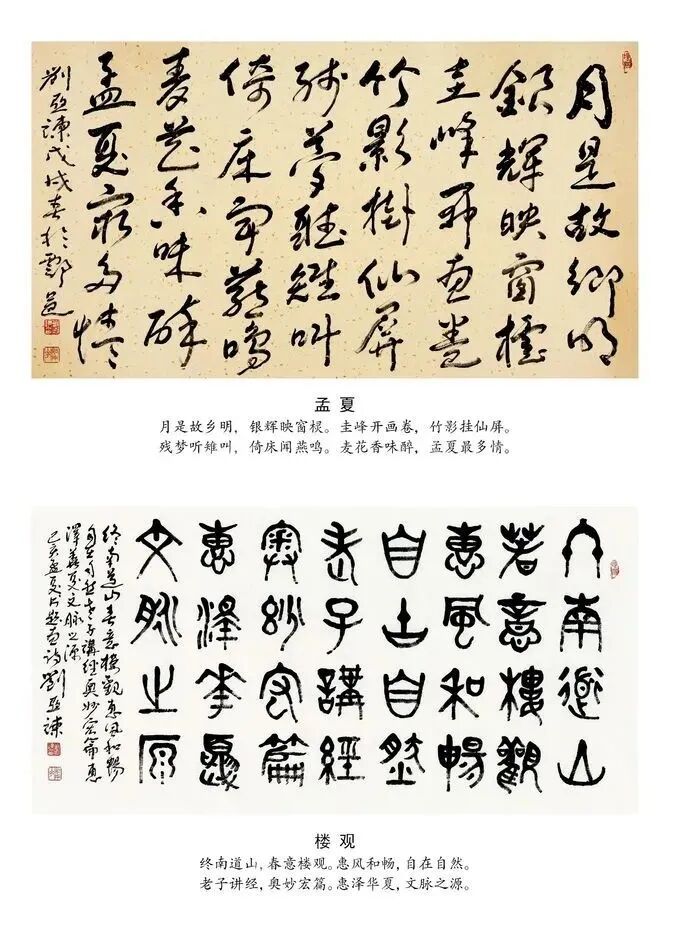 月是故鄉明
銀輝映窗櫺
圭峰开画卷
竹影掛仙屏
残夢聽雉叫
倚床闻燕鳴
麦花香味醉
孟夏最多情
劉亞諫戊戌春於酆邑
孟夏
月是故乡明，银辉映窗棂。圭峰开画卷，竹影挂仙屏。
残梦听雉叫，倚床闻燕鸣。麦花香味醉，孟夏最多情。
終南道山
春意樓觀
惠風和暢
自在自然
老子講經
奧妙宏篇
惠澤華夏
文脈之源
終南道山春意樓觀惠風和暢
自在自然老子講經奧妙宏篇惠
澤華夏文脈之源
己亥孟夏占題画詩劉亞諫
楼观
终南道山，春意楼观。惠风和畅，自在自然。
老子讲经，奥妙宏篇。惠泽华夏，文脉之源。